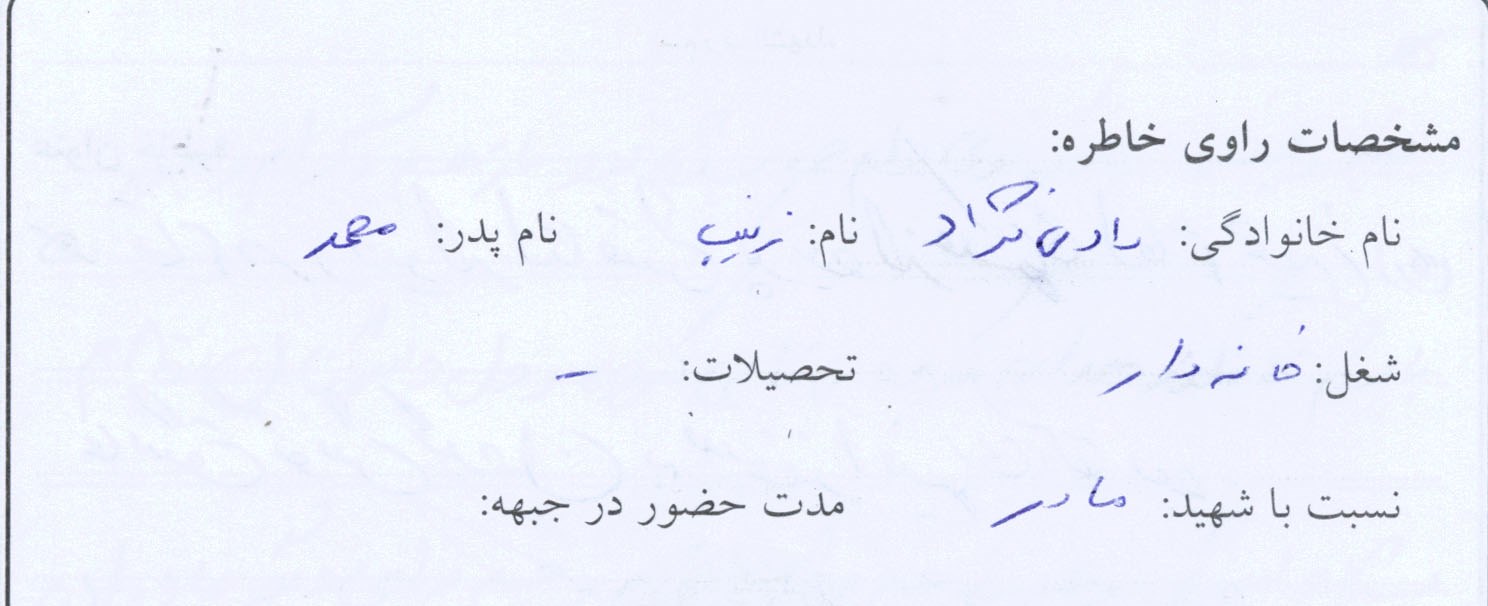 مشخصات راوی خاطره:
نام خانوادگی: رادی نژاد نام: زینب نام پدر: محمد
شغل: خانه دار تحصیلات: -
نسبت با شهید: مادر مدت حضور در جبهه: